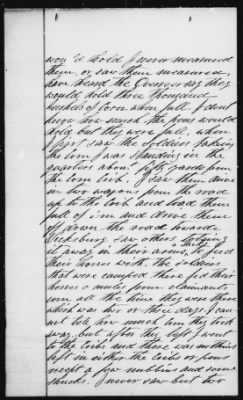 would hold I never measured
them, or saw them measured,
have heard the Overseer say they
would hold three thousand
bushels of corn when full. I dont
know how much the pens would
hold but they were full, when
I first saw the soldiers taking
the corn I was standing in the
quarters about fifty yards from
the corn crib. I saw them come
in two wagons from the road
up to the crib and load them
full of corn and drove them
off down the road towards
Vicksburg. Saw others
it away in their arms, & feed
their horses with the soldiers
that were camped there fed their
horses & mules from claimants
corn all the time they were there
which was two or three days I can
not tell how much corn they took
away but after they left I went
to the cribs and there was nothing
left in either the cribs or pens
except a few nubbins and some
shucks. I never saw but two